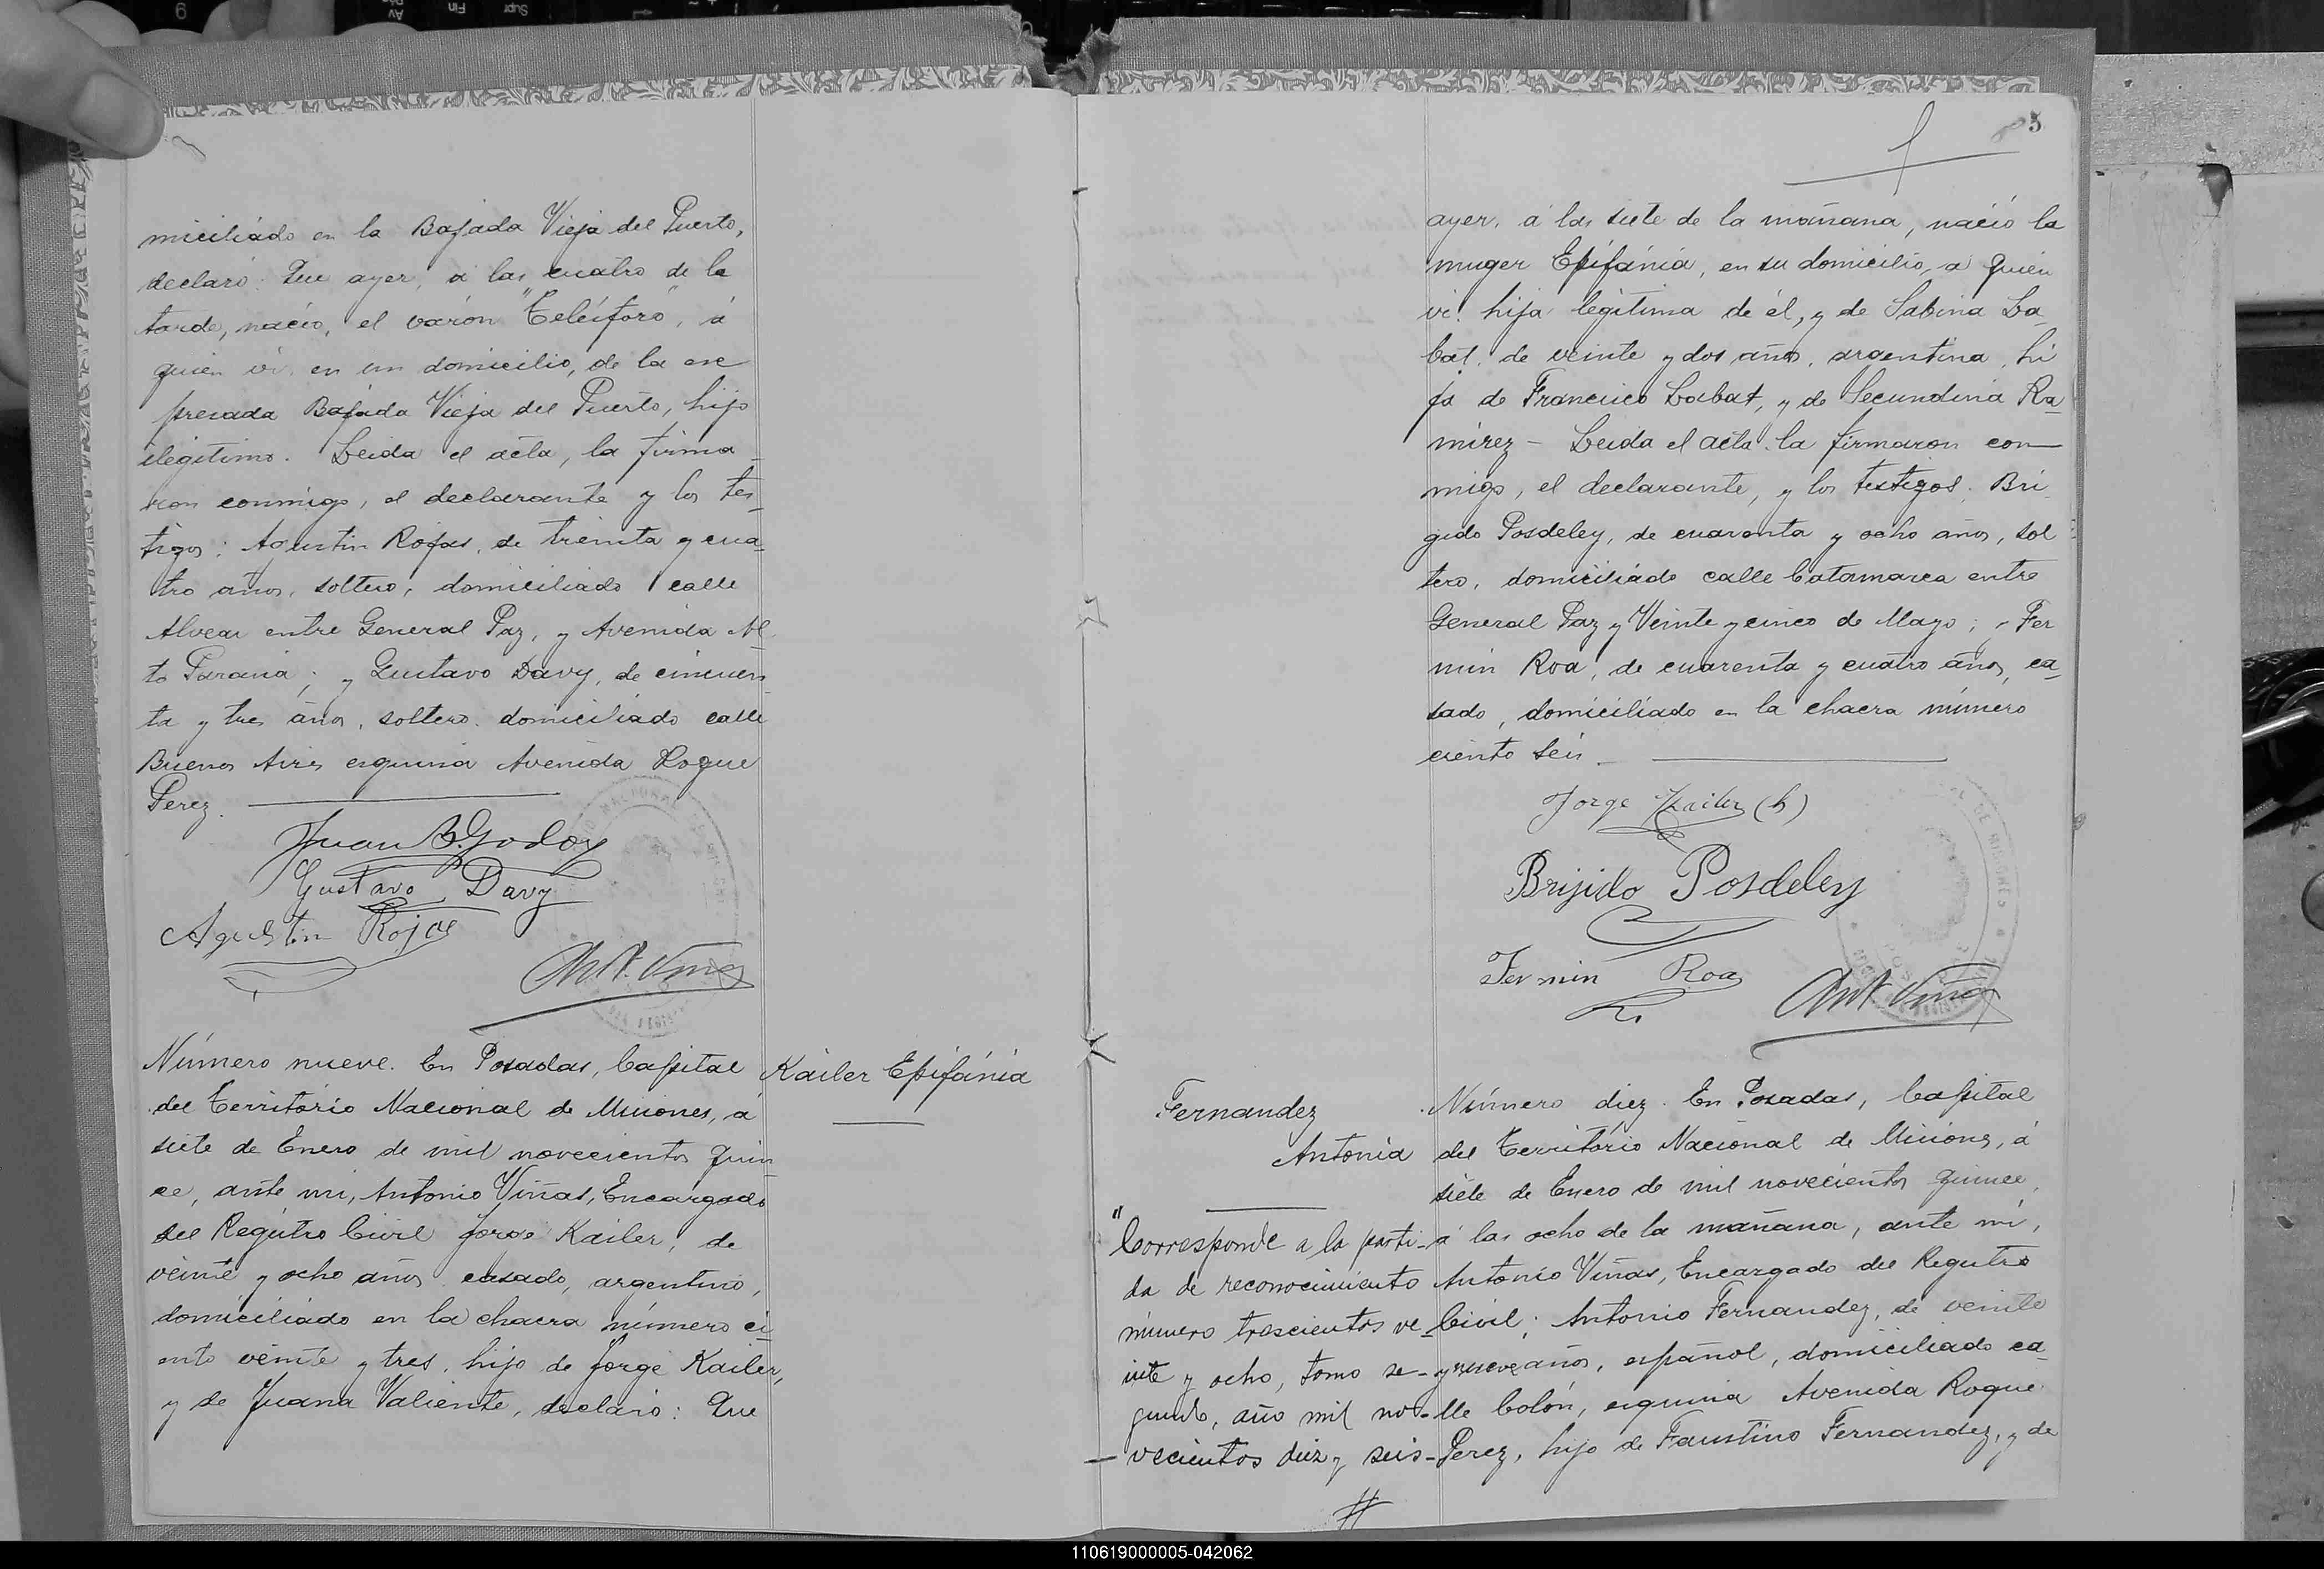 miciliado en la Bajada Vieja del Puerto,
declaró: Que ayer, á las cuatro de la
tarde, nació, el varón "Telésforo", á
quien ví, en un domicilio, de la ex
presada Bajada Vieja del Puerto, hijo
ilegítimo. Leida el acta, la firma_
ron conmigo, el declarante y los tes_
tigos: Agustin Rojas, de treinta y cua_
tro años, soltero, domiciliado calle
Alvear entre General Paz, y Avenida Al_
to Paraná; y Gustavo Davy, de cincuen_
ta y tres años, soltero, domiciliado calle
Buenos Aires esquina Avenida Roque
Perez.
Juan B. Godoy
Gustavo Davy
Agustin Rojas
Ant. Viñas
Número nueve. En Posadas, Capital
del Territorio Nacional de Misiones, á
siete de Enero de mil novecientos quin_
ce, ante mi, Antonio Viñas, Encargado
del Registro Civil Jorge Kailer, de
veinte y ocho años, casado, argentino,
domiciliado en la chacra número ci_
ento veinte y tres, hijo de Jorge Kailer,
y de Juana Valiente, declaró: Que
Kailer Epifánia
5
ayer, á las siete de la mañana, nació la
muger Epifánia, en su domicilio, a quien
ví: hija legítima de él, y de Sabina La_
bat, de veinte y dos años, argentina, hi
ja de Francisco Labat, y de Secundina Ra_
mirez - Leida el acta, la firmaron con
migo, el declarante, y los testigos: Bri_
gido Posdeley, de cuarenta y ocho años, sol
tero, domiciliado calle Catamarca entre
General Paz y Veinte y cinco de Mayo; y Fer
min Roa, de cuarenta y cuatro años, ca_
sado, domiciliado en la chacra número
ciento seis_
Jorge Kailer (h)
Brijido Posdeley
Fermin Roa
Ant. Viñas
Fernandez
Antonia
"Corresponde a la parti-
da de reconocimiento
número trescientos ve_
inte y ocho, tomo se-
gundo, año mil no-
vecientos diez y seis-
Número diez. En Posadas, Capital
del Territorio Nacional de Misiones, á
siete de Enero de mil novecientos quince,
á las ocho de la mañana, ante mi,
Antonio Viñas, Encargado del Registro
Civil; Antonio Fernandez, de veinte
y nueve años, español, domiciliado ca_
lle Colón, esquina Avenida Roque
Perez, hijo de Faustino Fernandez, y de
110619000005-042062